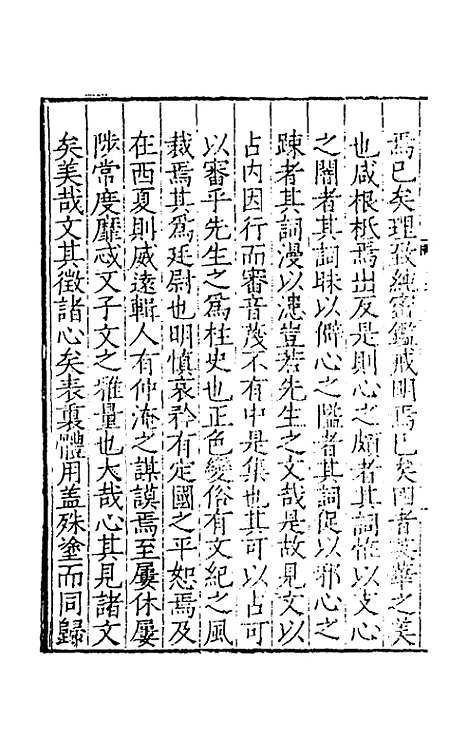 焉巳矣理致純密鑑戒明焉巳矣四者英華之美
也咸根柢焉出反是則心之頗者其詞怪以支心
之闇者其詞昧以僻心之隘者其詞促以邪心之
踈者其詞漫以漶豈若先生之文哉是故見文以
占内因行而審音茂不有中是集也其可以占可
以審乎先生之爲柱史也正色變俗有文紀之風
裁焉其爲廷尉也明慎哀矜有定國之平恕焉及
在西夏則威遠輯人有仲淹之謀謨焉至屢休屢
陟常度靡忒又子文之雅量也大哉心其見諸文
矣美哉文其徵諸心矣表裏體用盖殊塗而同歸